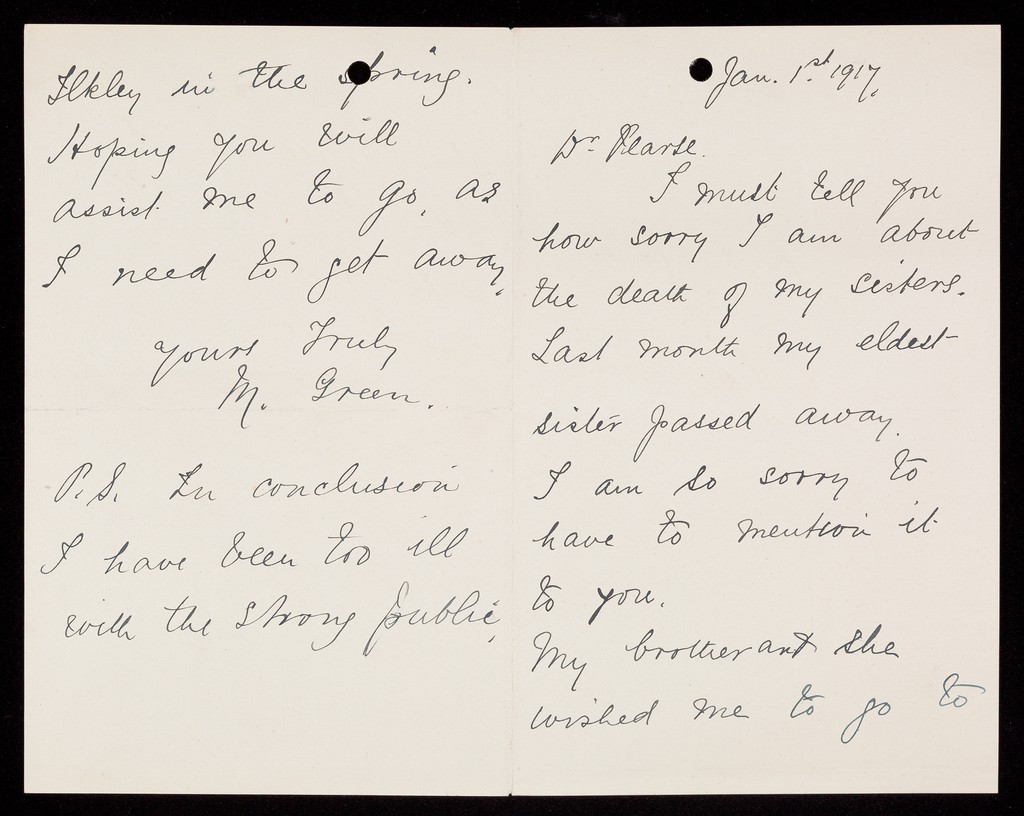 Jan. 1st. 1917.
Dr. Pearse.
I must tell you
how sorry I am about
the death of my sisters.
Last month my eldest
sister passed away.
I am so sorry to
have to mention it
to you.
My brother and she
wished me to go to
Ilkley in the spring.
Hoping you will
assist me to go, as
I need to get away,
yours Truly
M. Green.
P.S. In conclusion
I have been too ill
with the strong public,